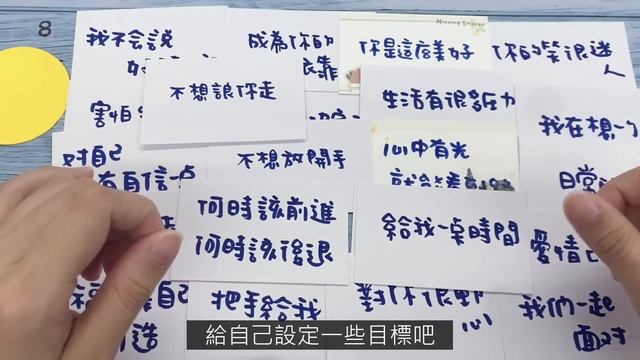 8
我不会説
成為你的
依靠
Missing Season
你是這麽美好
你的笑很迷
人
不想讓你走
害怕
生活有很多压力
我在想一
對自己
有自信一点
不想放開手
心中有光
日常
何時該前進
何時該後退
給我一桌時間
愛情
把手給我
對你很動
心
我們一起
面对
給自己設定一些目標吧